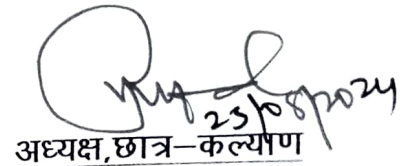 23/08/2024
अध्यक्ष,छात्र–कल्याण